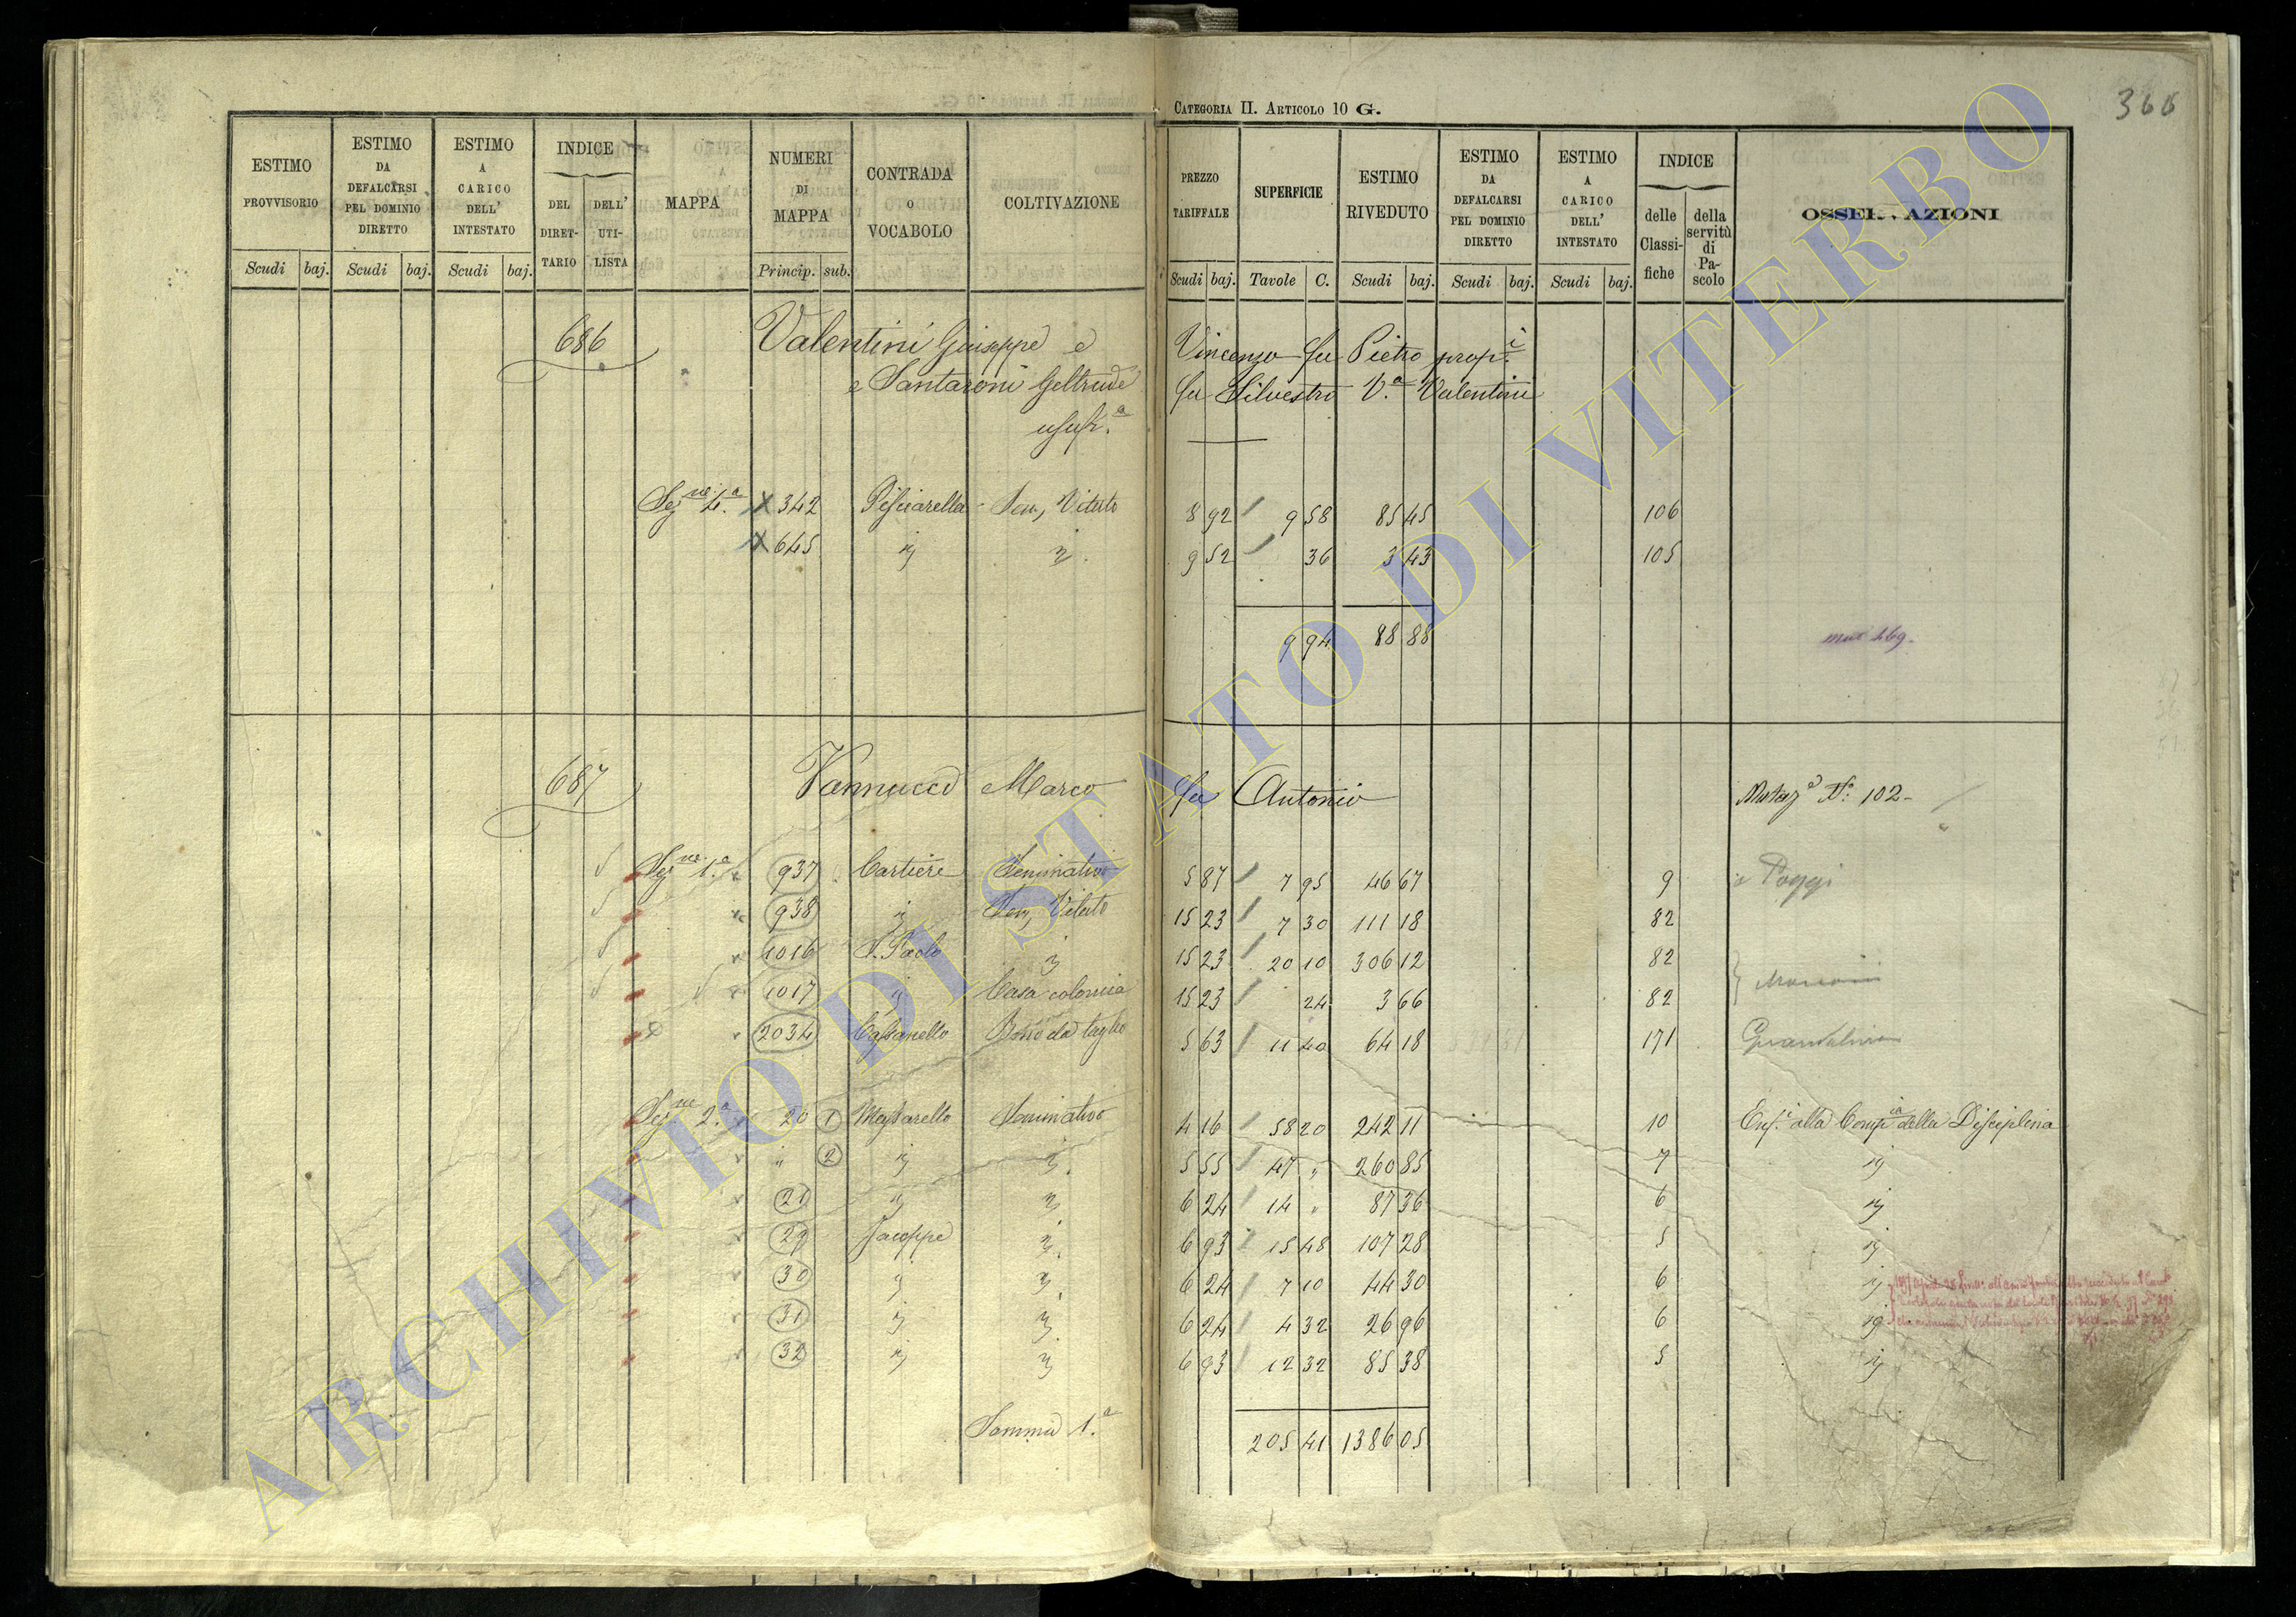 CATEGORIA II. ARTICOLO 10 G.
366
ESTIMO PROVVISORIO Scudi baj.
ESTIMO DA DEFALCARSI PEL DOMINIO DIRETTO Scudi baj.
ESTIMO A CARICO DELL' INTESTATO Scudi baj.
INDICE DEL DIRETTARIO DELL' UTILISTA
MAPPA
NUMERI DI MAPPA Princip. sub.
CONTRADA O VOCABOLO
COLTIVAZIONE
PREZZO TARIFFALE Scudi baj.
SUPERFICIE Tavole C.
ESTIMO RIVEDUTO Scudi baj.
ESTIMO DA DEFALCARSI PEL DOMINIO DIRETTO Scudi baj.
ESTIMO A CARICO DELL' INTESTATO Scudi baj.
INDICE delle Classifiche della servitù di Pascolo
OSSERVAZIONI
686 Valentini Giuseppe e Vincenzo fu Pietro prop.i
e Santaroni Geltrude fu Silvestro V.a Valentini
usufr.a
Sez.ne 4.a X 342 Pisciarella Sem, Vitato 8 92 9 58 85 45 106
X 645 ij ij 9 52 36 3 43 105
9 94 88 88 mut 469.
687 Vannucci Marco fu Antonio Mutaz.e N.o 102
Sez.ne 1.a 937 Cartiere Seminativo 5 87 7 95 46 67 9 Poggi
938 ij Sem, Vitato 15 23 7 30 111 18 82
1016 S. Paolo ij 15 23 20 10 306 12 82
1017 ij Casa colonica 15 23 24 3 66 82
2034 Cassanello Bosco da taglio 5 63 11 40 64 18 171
Sez.ne 2.a 20 1 Seminativo 4 16 58 20 242 11 10 Enf.i alla Comp.ia della Disciplina
" 2 ij ij 5 55 47 " 260 85 7 ij
21 ij ij 6 24 14 " 87 36 6 ij
29 Jacoppe ij 6 93 15 48 107 28 5 ij
30 ij ij 6 24 7 10 44 30 6 ij
31 ij ij 6 24 4 32 26 96 6 ij
32 ij ij 6 93 12 32 85 38 5 ij
Somma 1.a 205 41 1386 05
ARCHIVIO DI STATO DI VITERBO